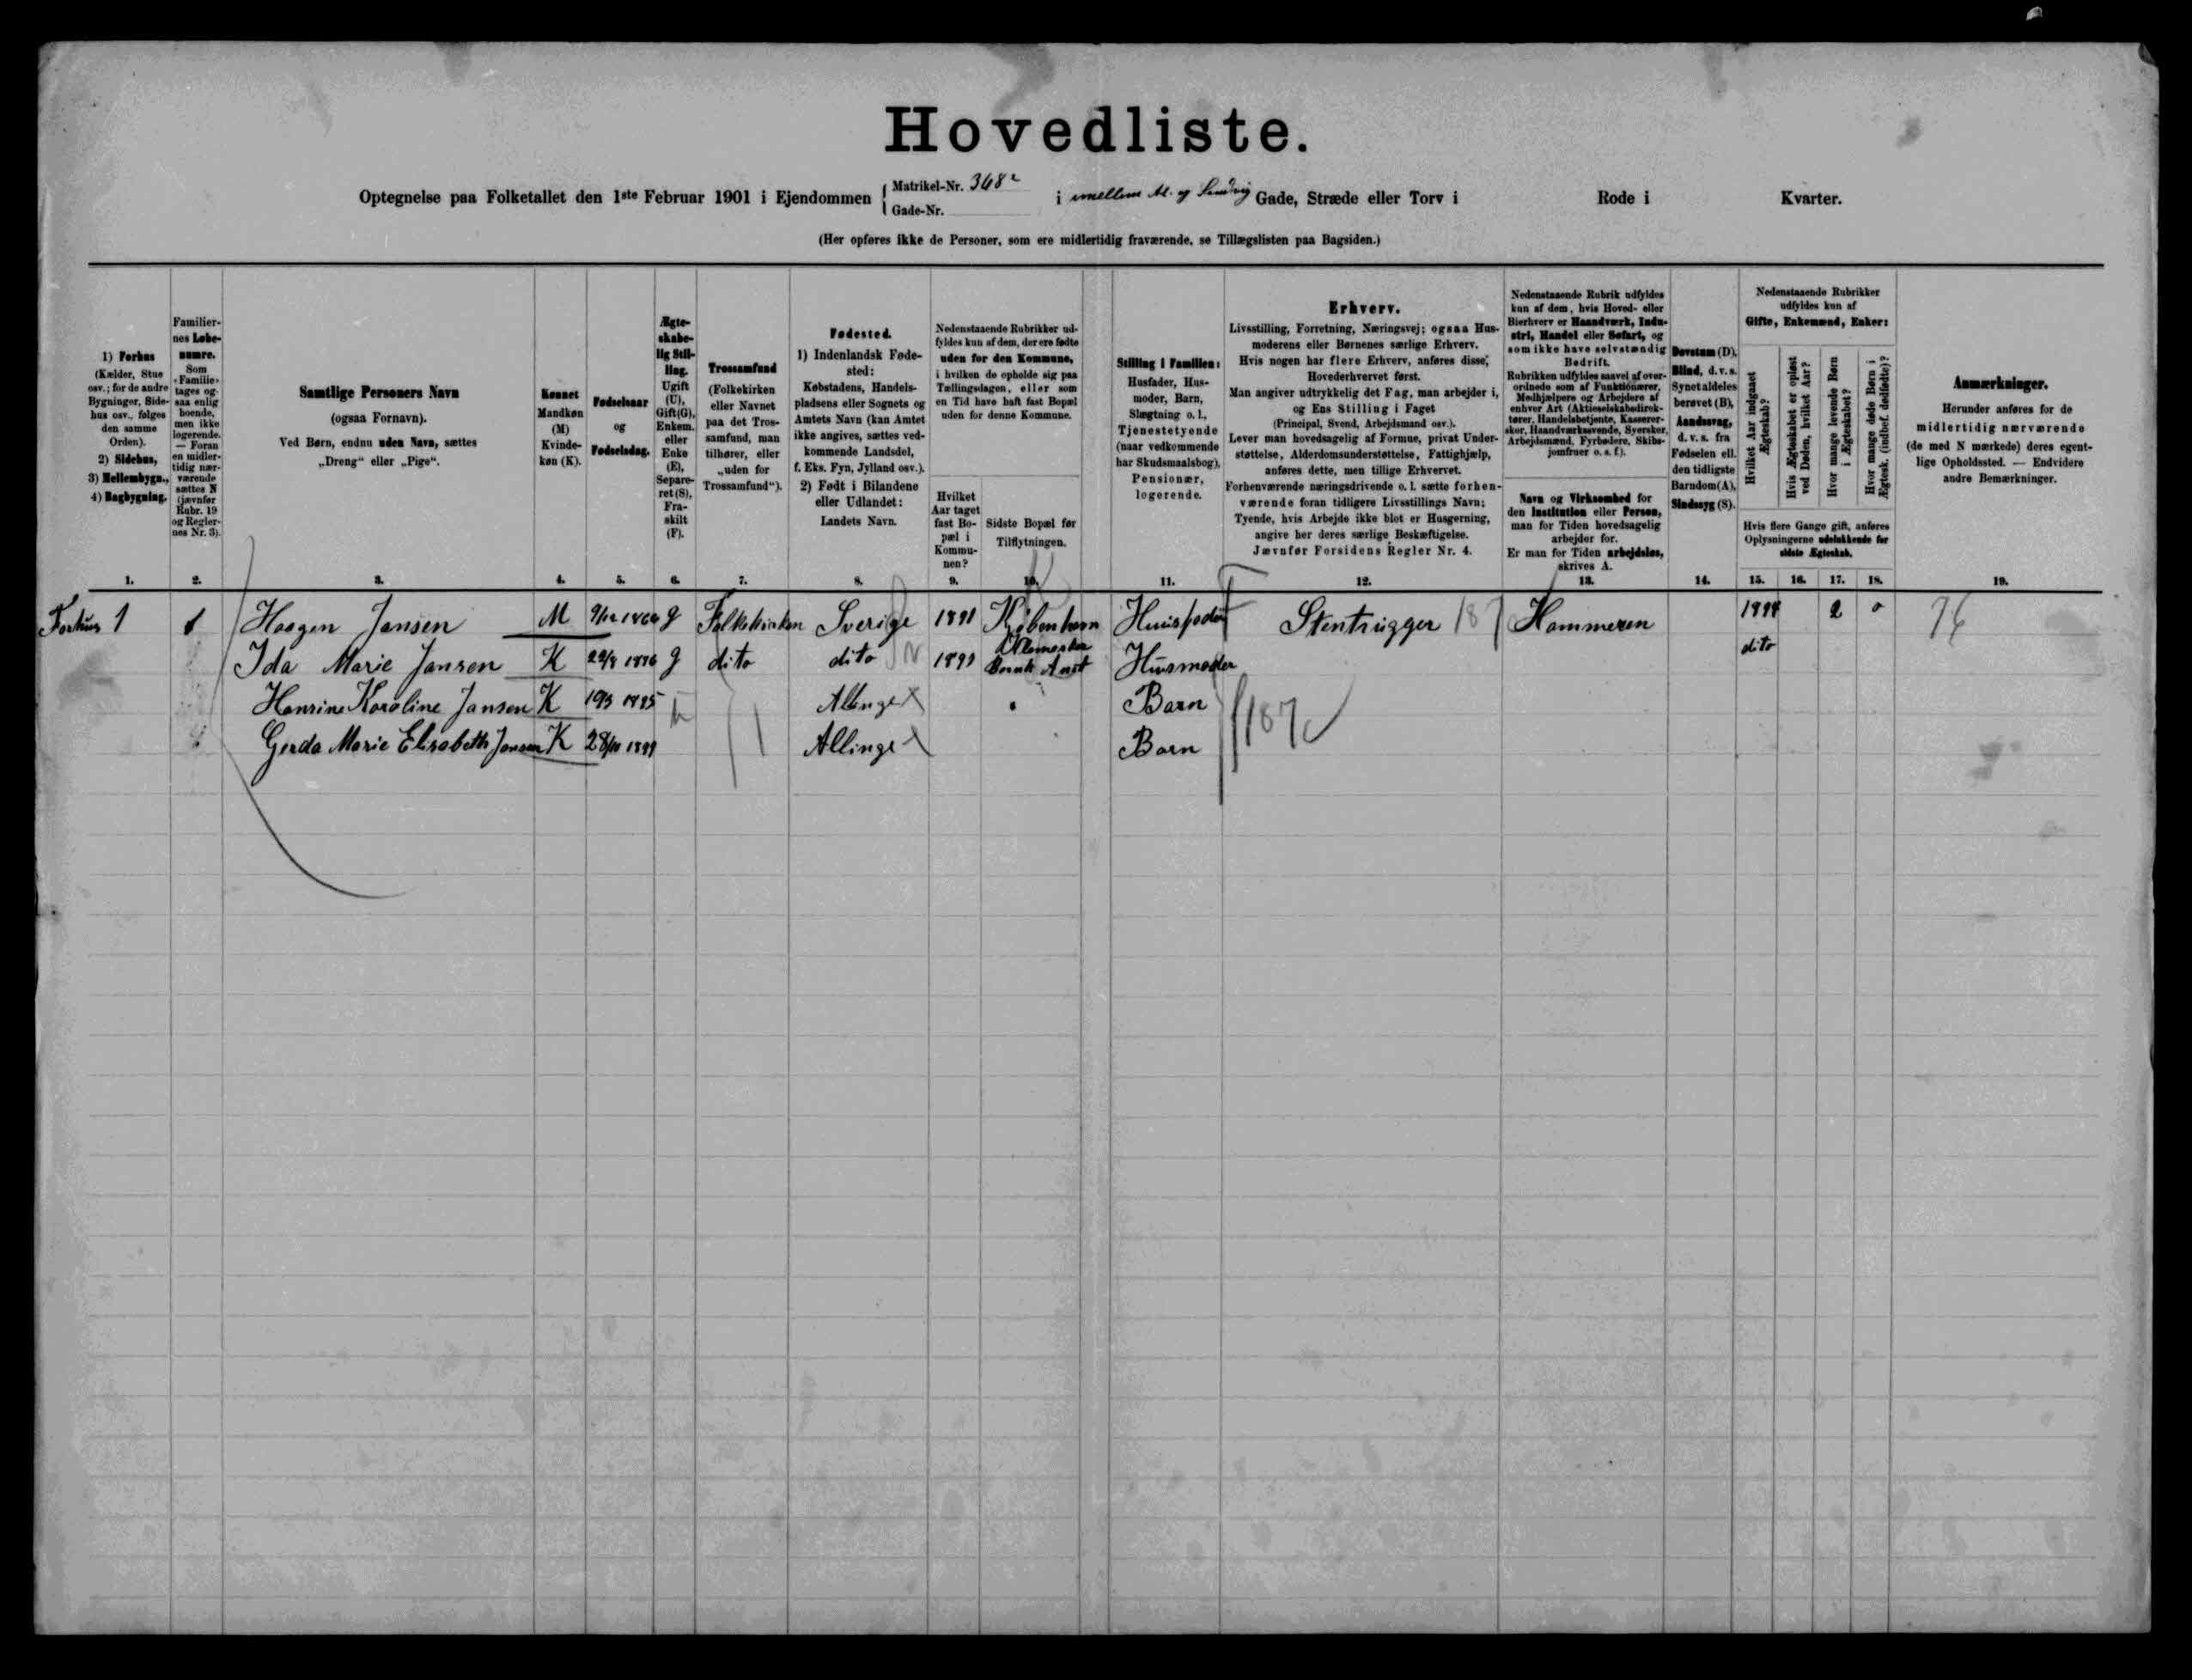 Hovedliste.
Optegnelse paa Folketallet den 1ste Februar 1901 i Ejendommen { Matrikel-Nr. 368² Gade-Nr. i imellem Al. og Sandvig Gade, Stræde eller Torv i Rode i Kvarter.
(Her opføres ikke de Personer, som ere midlertidig fraværende, se Tillægslisten paa Bagsiden.)
1) Forhus
(Kælder, Stue
osv.; for de andre
Bygninger, Side-
hus osv., følges
den samme
Orden).
2) Sidehus,
3) Mellembygn.,
4) Bagbygning.
Familier-
nes Løbe-
numre.
Som
„Familie“
tages og-
saa enlig
boende,
men ikke
logerende.
— Foran
en midler-
tidig nær-
værende
sættes N
(jævnfør
Rubr. 19
og Regler-
nes Nr. 3).
Samtlige Personers Navn
(ogsaa Fornavn).
Ved Børn, endnu uden Navn, sættes
„Dreng“ eller „Pige“.
Kønnet
Mandkøn
(M)
Kvinde-
køn (K).
Fødselsaar
og
Fødselsdag.
Ægte-
skabe-
lig Stil-
ling.
Ugift
(U),
Gift(G),
Enkem.
eller
Enke
(E),
Separe-
ret (S),
Fra-
skilt
(F).
Trossamfund
(Folkekirken
eller Navnet
paa det Tros-
samfund, man
tilhører, eller
„uden for
Trossamfund“).
Fødested.
1) Indenlandsk Føde-
sted:
Købstadens, Handels-
pladsens eller Sognets og
Amtets Navn (kan Amtet
ikke angives, sættes ved-
kommende Landsdel,
f. Eks. Fyn, Jylland osv.).
2) Født i Bilandene
eller Udlandet:
Landets Navn.
Nedenstaaende Rubrikker ud-
fyldes kun af dem, der ere fødte
uden for den Kommune,
i hvilken de opholde sig paa
Tællingsdagen, eller som
en Tid have haft fast Bopæl
uden for denne Kommune.
Hvilket
Aar taget
fast Bo-
pæl i
Kommu-
nen?
Sidste Bopæl før
Tilflytningen.
Stilling i Familien:
Husfader, Hus-
moder, Barn,
Slægtning o. l.,
Tjenestetyende
(naar vedkommende
har Skudsmaalsbog),
Pensionær,
logerende.
Erhverv.
Livsstilling, Forretning, Næringsvej; ogsaa Hus-
moderens eller Børnenes særlige Erhverv.
Hvis nogen har flere Erhverv, anføres disse,
Hovederhvervet først.
Man angiver udtrykkelig det Fag, man arbejder i,
og Ens Stilling i Faget
(Principal, Svend, Arbejdsmand osv.).
Lever man hovedsagelig af Formue, privat Under-
støttelse, Alderdomsunderstøttelse, Fattighjælp,
anføres dette, men tillige Erhvervet.
Forhenværende næringsdrivende o. l. sætte forhen-
værende foran tidligere Livsstillings Navn;
Tyende, hvis Arbejde ikke blot er Husgerning,
angive her deres særlige Beskæftigelse.
Jævnfør Forsidens Regler Nr. 4.
Nedenstaaende Rubrik udfyldes
kun af dem, hvis Hoved- eller
Bierhverv er Haandværk, Indu-
stri, Handel eller Søfart, og
som ikke have selvstændig
Bedrift.
Rubrikken udfyldes saavel af over-
ordnede som af Funktionærer,
Medhjælpere og Arbejdere af
enhver Art (Aktieselskabsdirek-
tører, Handelsbetjente, Kasserer-
sker, Haandværkssvende, Syersker,
Arbejdsmænd, Fyrbødere, Skibs-
jomfruer o. s. f.).
Navn og Virksomhed for
den Institution eller Person,
man for Tiden hovedsagelig
arbejder for.
Er man for Tiden arbejdsløs,
skrives A.
Døvstum (D),
Blind, d. v. s.
Synet aldeles
berøvet (B),
Aandssvag,
d. v. s. fra
Fødselen ell.
den tidligste
Barndom(A),
Sindssyg (S).
Nedenstaaende Rubrikker
udfyldes kun af
Gifte, Enkemænd, Enker:
Hvilket Aar indgaaet
Ægteskab?
Hvis Ægteskabet er opløst
ved Døden, hvilket Aar?
Hvor mange levende Børn
i Ægteskabet?
Hvor mange døde Børn i
Ægtesk. (indbef. dødfødte)?
Hvis flere Gange gift, anføres
Oplysningerne udelukkende for
sidste Ægteskab.
Anmærkninger.
Herunder anføres for de
midlertidig nærværende
(de med N mærkede) deres egent-
lige Opholdssted. — Endvidere
andre Bemærkninger.
1. 2. 3. 4. 5. 6. 7. 8. 9. 10. 11. 12. 13. 14. 15. 16. 17. 18. 19.
Forhus 1 1 Haagen Jansen M 9/12 1864 g Folkekirken Sverige 1891 København Huusfader Stenhugger 187 Hammeren 1894 2 0 76
Ida Marie Jansen K 22/8 1876 g dito dito 1893 Klemensker Bornh Amt Husmoder dito
Hansine Karoline Jansen K 10/3 1895 Allinge Barn 187
Gerda Marie Elisabeth Jansen K 28/11 1899 Allinge Barn